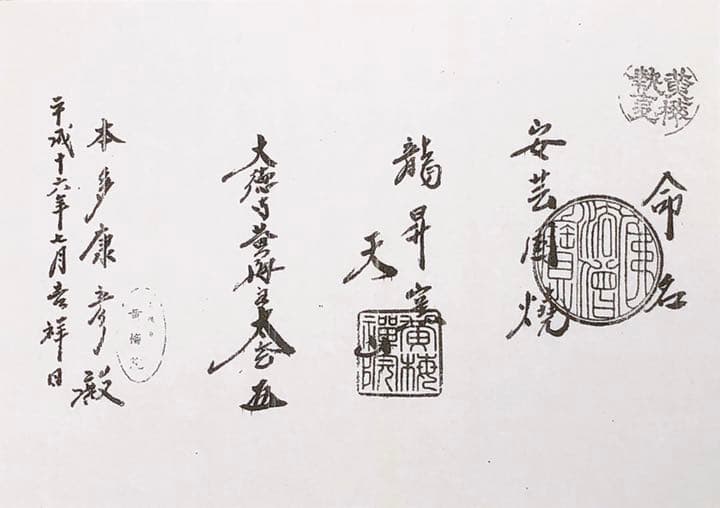 命名
安芸国焼
龍昇窯
天
黄梅
禪院
大徳寺黄梅主太玄
本多康殿
平成十六年七月吉祥日